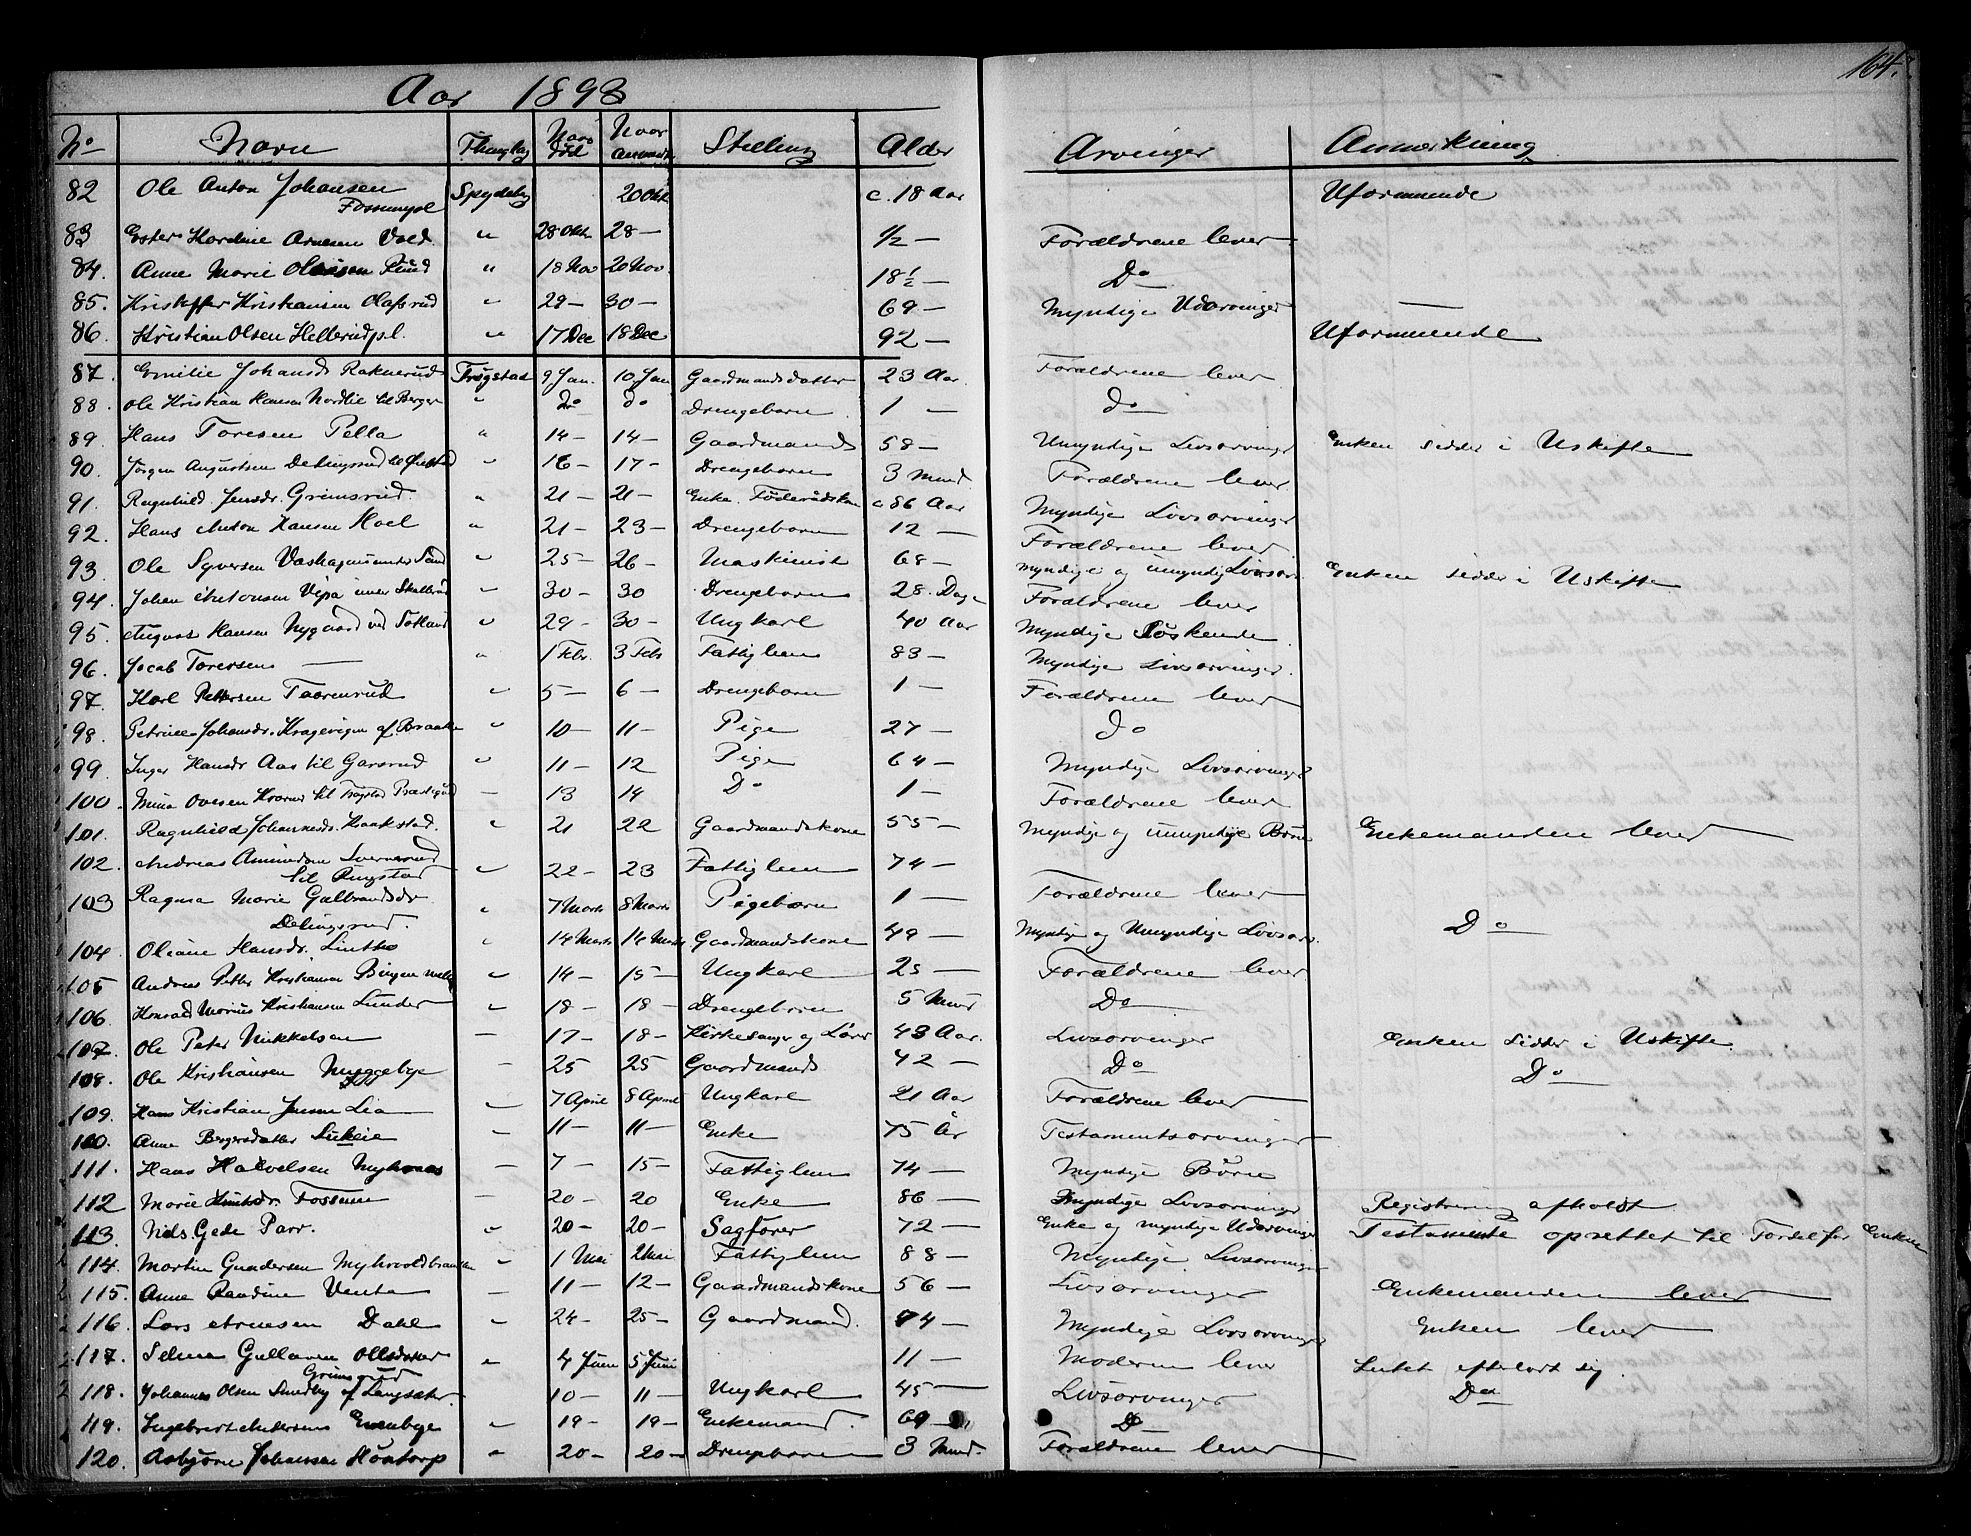 164.
Aar 1893
No Navn Thinglag Naar død Naar anmeldt Stilling Alder Arvinger Anmerkning
82 Ole Anton Johansen Spydeberg 20 Okt c. 18 Aar Uformuende
Fossumpl
83 Ester Hardine Arnesen Vold " 28 Okt 28 — 1/2 — Forældrene lever
84. Anne Marie Olausen Ruud " 18 Nov 20 Nov. 18 1/2 — Do
85. Kristoffer Kristiansen Olafsrud " 29 — 30 — 69 — Myndige Udarvinger —
86. Kristian Olsen Hellerudpl. " 17 Dec 18 Dec 92 — Uformuende
87. Emilie Johansd. Raknerud Trøgstad 9 Jan. 10 Jan Gaardmandsdatter 23 Aar Forældrene lever
88. Ole Kristian Hansen Nordlie til Berger " do do Drengebarn 1 — do
89. Hans Toresen Pella " 14 — 14 — Gaardmand 58 — Umyndige Livsarvinger Enken sidder i Uskifte
90. Jørgen Augustsen Delingsrud til " 16 — 17 — Drengebarn 3 Mnd. Forældrene lever
91. Ragnhild Jensdr. Grimsrud " 21 — 21 — Enke. Føderådskone c 86 Aar Myndige Livsarvinger
92. Hans Anton Hansen Moel " 21 — 23 — Drengebarn 12 — Forældrene lever
93. Ole Syversen Vashagen under Sand " 25 — 26 — Maskinist 68 — Myndige og umyndige Livsarv. Enken sidder i Uskifte
94. Johan Antonsen Vepa under Skalbrud " 30 — 30 Drengebarn 28. Dage Forældrene lever
95. August Hansen Nygaard ved Sotland " 29 — 30 — Ungkarl 40 Aar Myndige Søskende
96. Jacob Toresen — " 1 Febr. 3 Febr Fattiglem 83 — Myndige Livsarvinger.
97. Karl Pettersen Taarenrud " 5 — 6 — Drengebarn 1 — Forældrene lever
98. Petrine Johansdr. Kragevigen af Braate " 10 — 11 — Pige 27 — do
99. Inger Hansdr Aas til Garsrud " 11 — 12 Pige 64 — Myndige Livsarvinger
100. Mina Ovesen til Trøgstad — 13 14 Do 1 — Forældrene lever
101. Ragnhild Johannesdr. Haakstad. " 21 22 Gaardmandskone 55 — Myndige og umyndige Børn Enkemanden lever
102. Andreas Amundsen " 22 — 23 Fattiglem 74 —
til Ringstad
103 Ragna Marie Gulbrandsdr " 7 Marts 8 Marts Pigebarn 1 — Forældrene lever
Delingsrud.
104. Oliane Hansdr. Lintho " 14 Marts 14 Marts Gaardmandskone 49 — Myndige og Umyndige Livsarv. Do
105 Andreas Petter Kristiansen Bingen " 14 — 15 — Ungkarl 25 — Forældrene lever
106. Konrad Marius Kristiansen Lunder " 18 — 18 — Drengebarn 5 Mnd Do
107. Ole Peter Mikkelsen — 17 — 18 — Kirkesanger og Lærer 43 Aar. Livsarvinger Enken sidder i Uskifte.
108. Ole Kristiansen Myggebye — 25 25 Gaardmand 42 — Do Do
109. Hans Kristian Jensen Lia — 7 April 8 April Ungkarl 21 Aar Forældrene lever
110. Anne Bergersdatter — 11 — 11 — Enke 75 År Testamentsarvinger
111. Hans Halvelsen Myhraas — 7 — 15 — Fattiglem 74 — Myndige Børn
112 Marie Knutsdr. Fossum — 20 — 20 Enke 86 — Myndige Livsarvinger Registrering afholdt
113. Niels Gede Parr. " 20 — 20 — Sagfører 72 — Enke og myndige Udarvinger Testamente oprettet til Fordel for Enken
114. Martin Gundersen Myhrvoldbraaten " 1 Mai 2 Mai Fattiglem 88 — Myndige Livsarvinger
115. Anne Randine Venta — 11 — 12 — Gaardmandskone 56 — Livsarvinger Enkemanden lever
116. Lars Arnesen Dahl — 24 — 25 — Gaardmand. 74 — Myndige Livsarvinger Enken lever
117. Selma Gullaven Ollsdatter " 4 Juni 5 Juni 11 — Moderen lever Intet efterladt sig.
Grimsrud
118. Johannes Olsen Smedby af Langsæter " 10 — 11 — Ungkarl 45 — Livsarvinger Do
119. Ingebret Andersen Eiembye — 19 — 19 — Enkemand. 69 — Do
120. Asbjørn Johansen Høntorp " 20 — 20 — Drengebarn 3 Mnd. Forældrene lever